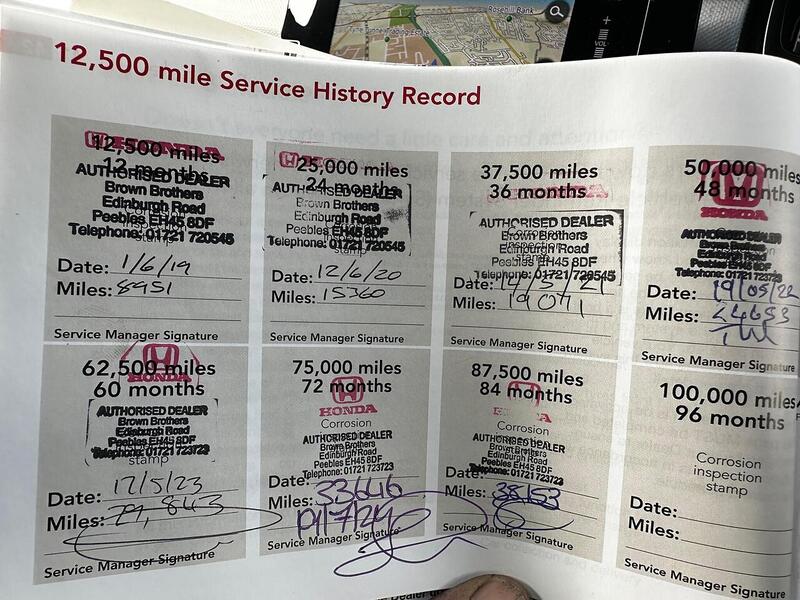 Rosehill Bank
+
VOL
12,500 mile Service History Record
12,500 miles
12 months
HONDA
AUTHORISED DEALER
Brown Brothers
Edinburgh Road
Peebles EH45 8DF
Telephone: 01721 720545
stamp
Date: 1/6/19
Miles: 8951
Service Manager Signature
25,000 miles
24 months
AUTHORISED DEALER
Brown Brothers
Edinburgh Road
Peebles EH45 8DF
Telephone: 01721 720545
stamp
Date: 12/6/20
Miles: 15360
Service Manager Signature
37,500 miles
36 months
HONDA
AUTHORISED DEALER
Corrosion
Brown Brothers
inspection
Edinburgh Road
Peebles EH45 8DF
Telephone: 01721 720545
Date: 14/5/21
Miles: 19071
Service Manager Signature
50,000 miles
48 months
HONDA
AUTHORISED DEALER
Brown Brothers
Edinburgh Road
Peebles EH45 8DF
Telephone: 01721 723723
Date: 19/05/22
Miles: 24653
Service Manager Signature
62,500 miles
60 months
HONDA
AUTHORISED DEALER
Brown Brothers
Edinburgh Road
Peebles EH45 8DF
Telephone: 01721 723723
stamp
Date: 17/5/23
Miles: 29,843
Service Manager Signature
75,000 miles
72 months
HONDA
Corrosion
AUTHORISED DEALER
Brown Brothers
Edinburgh Road
Peebles EH45 8DF
Telephone: 01721 723723
Date: 33646
Miles:
Service Manager Signature
87,500 miles
84 months
Corrosion
AUTHORISED DEALER
Brown Brothers
Edinburgh Road
Peebles EH45 8DF
Telephone: 01721 723723
Date:
Miles: 38153
Service Manager Signature
100,000 miles
96 months
Corrosion
inspection
stamp
Date:
Miles:
Service Manager Signature